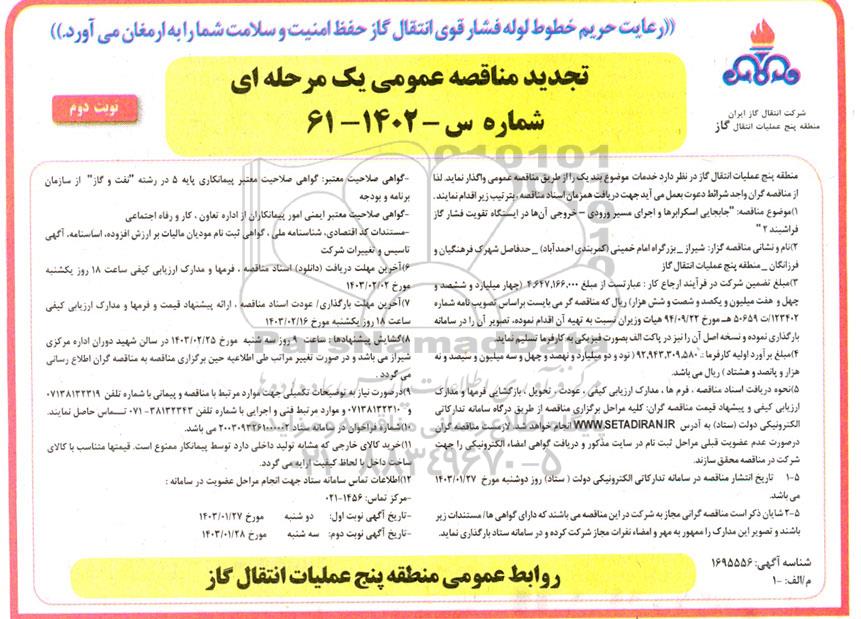 ((رعایت حریم خطوط لوله فشار قوی انتقال گاز حفظ امنیت و سلامت شما را به ارمغان می آورد.))
شرکت انتقال گاز ایران
منطقه پنج عملیات انتقال گاز
تجدید مناقصه عمومی یک مرحله ای
شماره س – ۱۴۰۲ – ۶۱
نوبت دوم
منطقه پنج عملیات انتقال گاز در نظر دارد خدمات موضوع بند یک را از طریق مناقصه عمومی واگذار نماید. لذا
از مناقصه گران واجد شرائط دعوت بعمل می آید جهت دریافت همزمان اسناد مناقصه، بترتیب زیر اقدام نمایند.
۱)موضوع مناقصه: "جابجایی اسکرابرها و اجرای مسیر ورودی – خروجی آن‌ها در ایستگاه تقویت فشار گاز
فراشبند ۲"
۲)نام و نشانی مناقصه گزار: شیراز _ بزرگراه امام خمینی (کمربندی احمدآباد) _ حدفاصل شهرک فرهنگیان و
فرزانگان _ منطقه پنج عملیات انتقال گاز
۳)مبلغ تضمین شرکت در فرآیند ارجاع کار : عبارتست از مبلغ ۴,۶۴۷,۱۶۶,۰۰۰ (چهار میلیارد و ششصد و
چهل و هفت میلیون و یکصد و شصت و شش هزار) ریال که مناقصه گر می بایست براساس تصویب نامه شماره
۱۲۳۴۰۲/ت ۵۰۶۵۹ هـ مورخ ۹۴/۰۹/۲۲ هیات وزیران نسبت به تهیه آن اقدام نموده، تصویر آن را در سامانه
بارگذاری نموده و نسخه اصل آن را نیز در پاکت الف بصورت فیزیکی به کارفرما تسلیم نماید.
۴)مبلغ برآورد اولیه کارفرما: ۹۲,۹۴۳,۳۰۹,۵۸۰ ( نود و دو میلیارد و نهصد و چهل و سه میلیون و سیصد و نه
هزار و پانصد و هشتاد ) ریال می باشد.
۵)نحوه دریافت اسناد مناقصه ، فرم ها ، مدارک ارزیابی کیفی ، عودت ، تحویل ، بازگشایی فرمها و مدارک
ارزیابی کیفی و پیشنهاد قیمت مناقصه گران: کلیه مراحل برگزاری مناقصه از طریق درگاه سامانه تدارکاتی
الکترونیکی دولت (ستاد) به آدرس WWW.SETADIRAN.IR انجام خواهد شد. لازمست مناقصه گران
درصورت عدم عضویت قبلی مراحل ثبت نام در سایت مذکور و دریافت گواهی امضاء الکترونیکی را جهت
شرکت در مناقصه محقق سازند.
۵-۱ تاریخ انتشار مناقصه در سامانه تدارکاتی الکترونیکی دولت ( ستاد) روز دوشنبه مورخ ۱۴۰۳/۰۱/۲۷
می باشد.
۵-۲ شایان ذکر است مناقصه گرانی مجاز به شرکت در این مناقصه می باشند که دارای گواهی ها/ مستندات زیر
باشند و تصویر این مدارک را ممهور به مهر و امضاء نفرات مجاز شرکت کرده و در سامانه ستاد بارگذاری نماید.
-گواهی صلاحیت معتبر: گواهی صلاحیت معتبر پیمانکاری پایه ۵ در رشته "نفت و گاز" از سازمان
برنامه و بودجه
-گواهی صلاحیت معتبر ایمنی امور پیمانکاران از اداره تعاون ، کار و رفاه اجتماعی
-مستندات کد اقتصادی، شناسنامه ملی ، گواهی ثبت نام مودیان مالیات بر ارزش افزوده، اساسنامه، آگهی
تاسیس و تغییرات شرکت
۶)آخرین مهلت دریافت (دانلود) اسناد مناقصه ، فرمها و مدارک ارزیابی کیفی ساعت ۱۸ روز یکشنبه
مورخ ۱۴۰۳/۰۲/۰۲
۷)آخرین مهلت بارگذاری/ عودت اسناد مناقصه ، ارائه پیشنهاد قیمت و فرمها و مدارک ارزیابی کیفی
ساعت ۱۸ روز یکشنبه مورخ ۱۴۰۳/۰۲/۱۶
۸)گشایش پیشنهادها : ساعت ۹ روز سه شنبه مورخ ۱۴۰۳/۰۲/۲۵ در سالن شهید دوران اداره مرکزی
شیراز می باشد و در صورت تغییر مراتب طی اطلاعیه حین برگزاری مناقصه به مناقصه گران اطلاع رسانی
می گردد.
۹)درصورت نیاز به توضیحات تکمیلی جهت موارد مرتبط با مناقصه و پیمانی با شماره تلفن ۰۷۱۳۸۱۳۲۳۱۹
و ۰۷۱۳۸۱۳۲۳۱۰ و موارد مرتبط فنی و اجرایی با شماره تلفن ۳۸۱۳۲۳۴۳-۰۷۱ تماس حاصل نمایند.
۱۰)شماره فراخوان در سامانه ستاد ۲۰۰۳۰۹۳۲۶۱۰۰۰۰۰۲ می باشد.
۱۱)خرید کالای خارجی که مشابه تولید داخلی دارد توسط پیمانکار ممنوع است. قیمتها متناسب با کالای
ساخت داخل با لحاظ کیفیت ارایه می گردد.
۱۲)اطلاعات تماس سامانه ستاد جهت انجام مراحل عضویت در سامانه :
-مرکز تماس: ۱۴۵۶-۰۲۱
-تاریخ آگهی نوبت اول: دو شنبه مورخ ۱۴۰۳/۰۱/۲۷
-تاریخ آگهی نوبت دوم: سه شنبه مورخ ۱۴۰۳/۰۱/۲۸
شناسه آگهی: ۱۶۹۵۵۵۶
م/الف: ۱-
روابط عمومی منطقه پنج عملیات انتقال گاز
ParsNamadData
۰۲۱-۸۸۳۴۹۶۷۰-۵